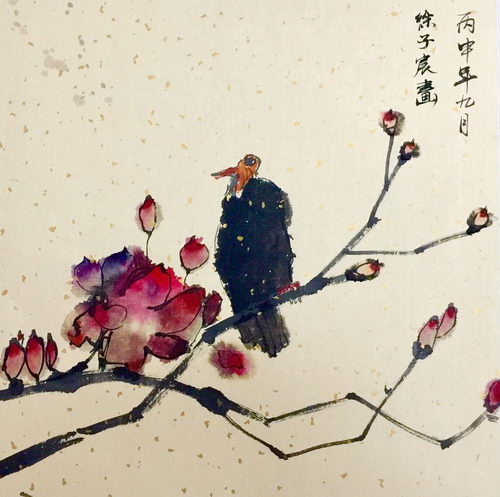 丙申年九月
徐子宸畫